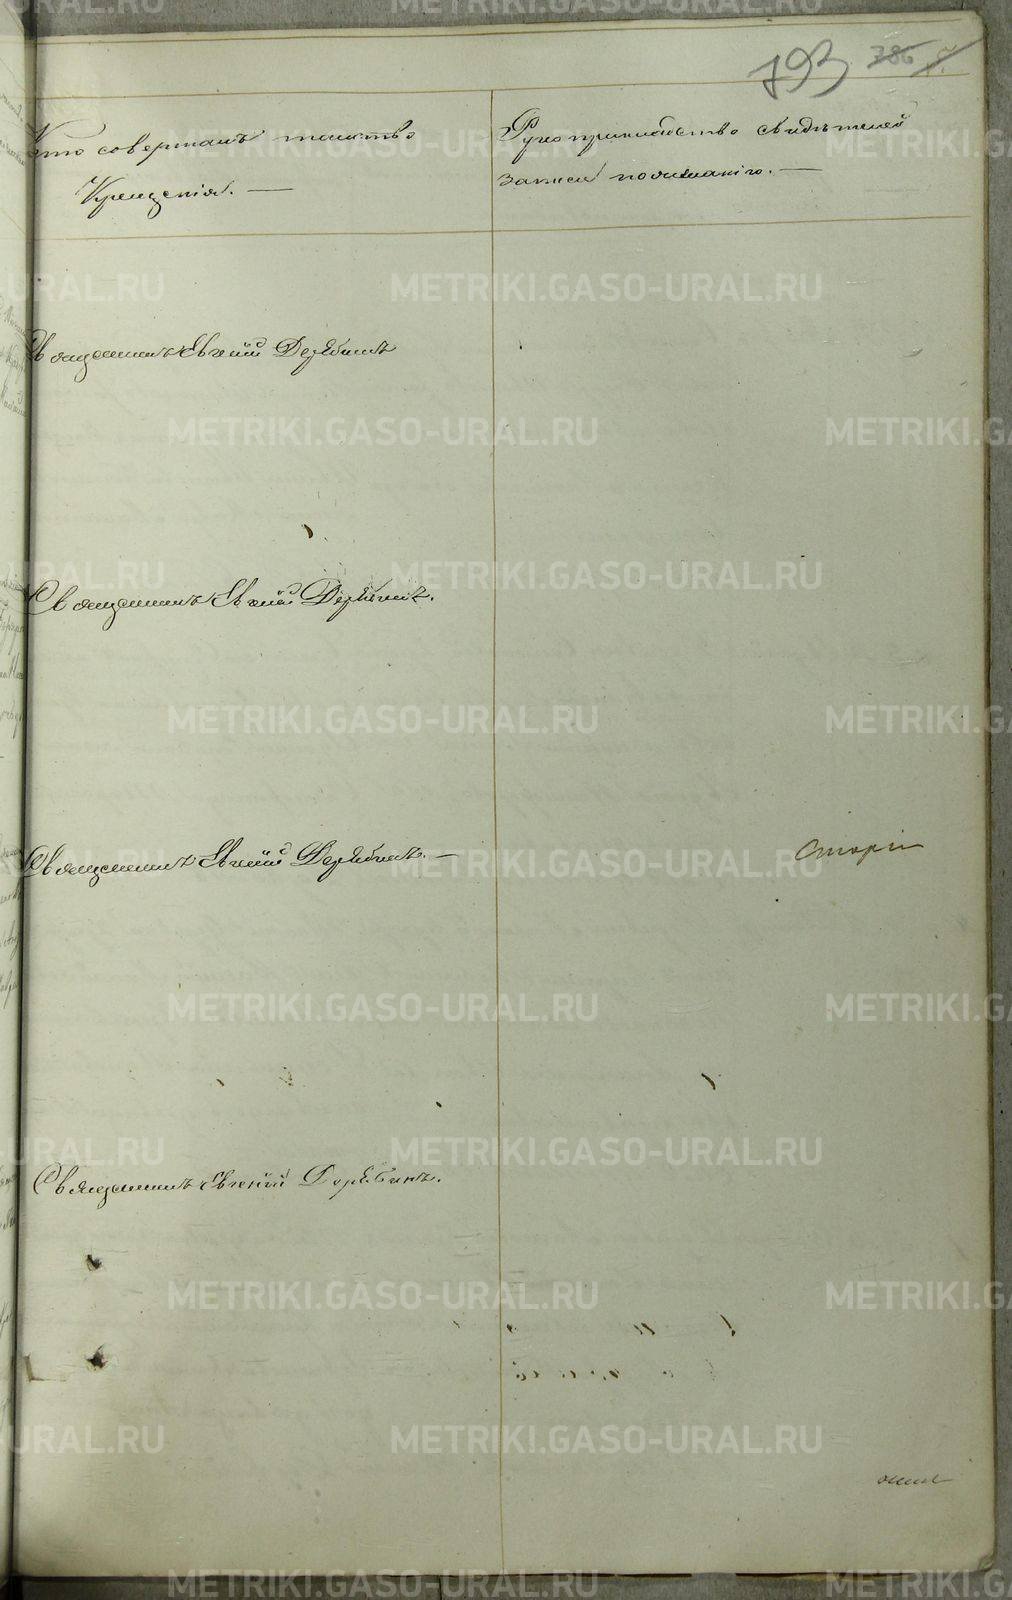 793 786
Кто совершалъ таинство
Крещенія. —
Рукоприкладство свидѣтелей
записи по желанію. —
Священникъ Евгеній Дерябинъ
Священникъ Евгеній Дерябинъ.
Священникъ Евгеній Дерябинъ. —
Священникъ Евгеній Дерябинъ.
METRIKI.GASO-URAL.RU